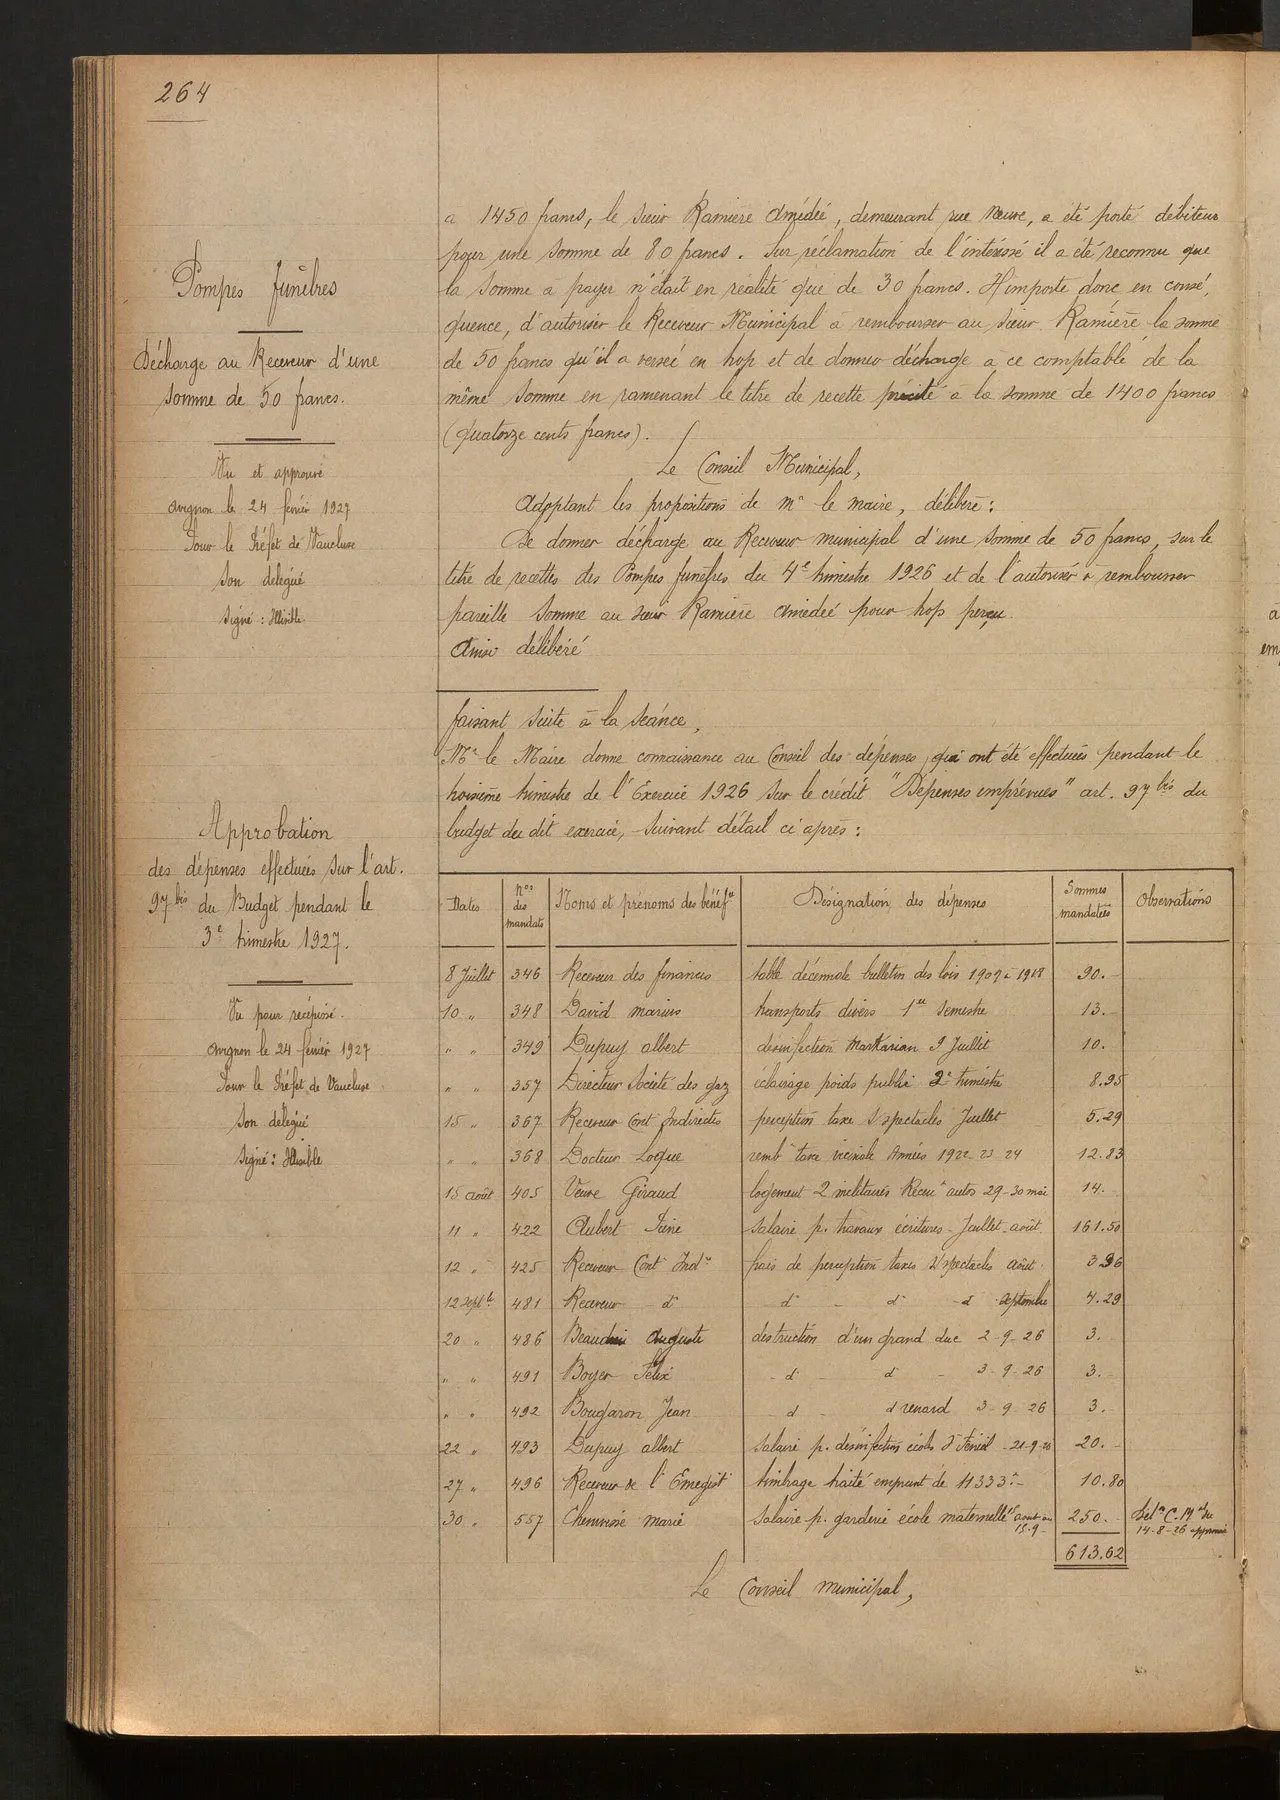 264
Pompes funèbres
Décharge au Receveur d'une
somme de 50 francs.
Vu et approuvé
Avignon le 24 février 1927
Pour le Préfet de Vaucluse
Son délégué
Signé : Illisible
a 1450 francs, le sieur Ramière Amédée, demeurant rue Neuve, a été porté débiteur
pour une somme de 80 francs. Sur réclamation de l'intéressé il a été reconnu que
la somme a payer n'était en réalité que de 30 francs. Il importe donc en consé,
quence, d'autoriser le Receveur Municipal à rembourser au sieur Ramière la somme
de 50 francs qu'il a versée en trop et de donner décharge à ce comptable de la
même somme en ramenant le titre de recette précité à la somme de 1400 francs
(quatorze cents francs).
Le Conseil Municipal,
Adoptant les propositions de Mr le Maire, délibère :
De donner décharge au Receveur municipal d'une somme de 50 francs, sur le
titre de recettes des Pompes funèbres du 4e trimestre 1926 et de l'autoriser à rembourser
pareille somme au sieur Ramière Amédée pour trop perçu.
Ainsi délibéré
Approbation
des dépenses effectuées sur l'art.
97 bis du Budget pendant le
3e trimestre 1927.
Vu pour récépissé.
Avignon le 24 février 1927
Pour le Préfet de Vaucluse
Son délégué
Signé : Illisible
faisant suite à la séance,
Mr le Maire donne connaissance au Conseil des dépenses, qui ont été effectuées pendant le
troisième trimestre de l'Exercice 1926 sur le crédit "Dépenses imprévues" art. 97 bis du
budget du dit exercice, suivant détail ci après :
Dates Nos des mandats Noms et prénoms des bénéfres Désignation des dépenses Sommes mandatées Observations
8 Juillet 346 Receveur des finances table décennale bulletin des lois 1909 à 1918 90.-
10 " 348 David Marius transports divers 1er semestre 13.-
" " 349 Dupuy Albert désinfection Markarian 9 Juillet 10.
" " 357 Directeur Société des gaz éclairage poids public 2e trimestre 8.95
15 " 367 Receveur Cont Indirectes perception taxe s/ spectacles Juillet 5.29
" " 368 Docteur Loque remb t taxe vicinale Années 1922 23 24 12.83
15 août 405 Veuve Giraud logement 2 militaires autos 29-30 mai 14.-
11 " 422 Aubert salaire p. travaux écritures - Juillet - août 161.50
12 " 425 Receveur Cont Indes frais de perception taxes s/ spectacles août 3.96
12 Septbe 481 Receveur d° d° - d° - d° Septembre 4.29
20 " 486 Beaudin Auguste destruction d'un grand duc 2-9-26 3.
" " 491 Boyer Félix d° - d° - 3-9-26 3.-
" " 492 Bougaron Jean d° - d° renard 3-9-26 3.-
22 " 493 Dupuy Albert salaire p. désinfection école 21-9-26 20.-
27 " 496 Receveur de l' timbrage traité emprunt de 11333 f- 10.80
30 " 557 Marie salaire p. garderie école maternelle août au 15-9- 250.- Delon C. Mal du 14-8-26 approuvée
613.62
Le Conseil municipal,
à
em